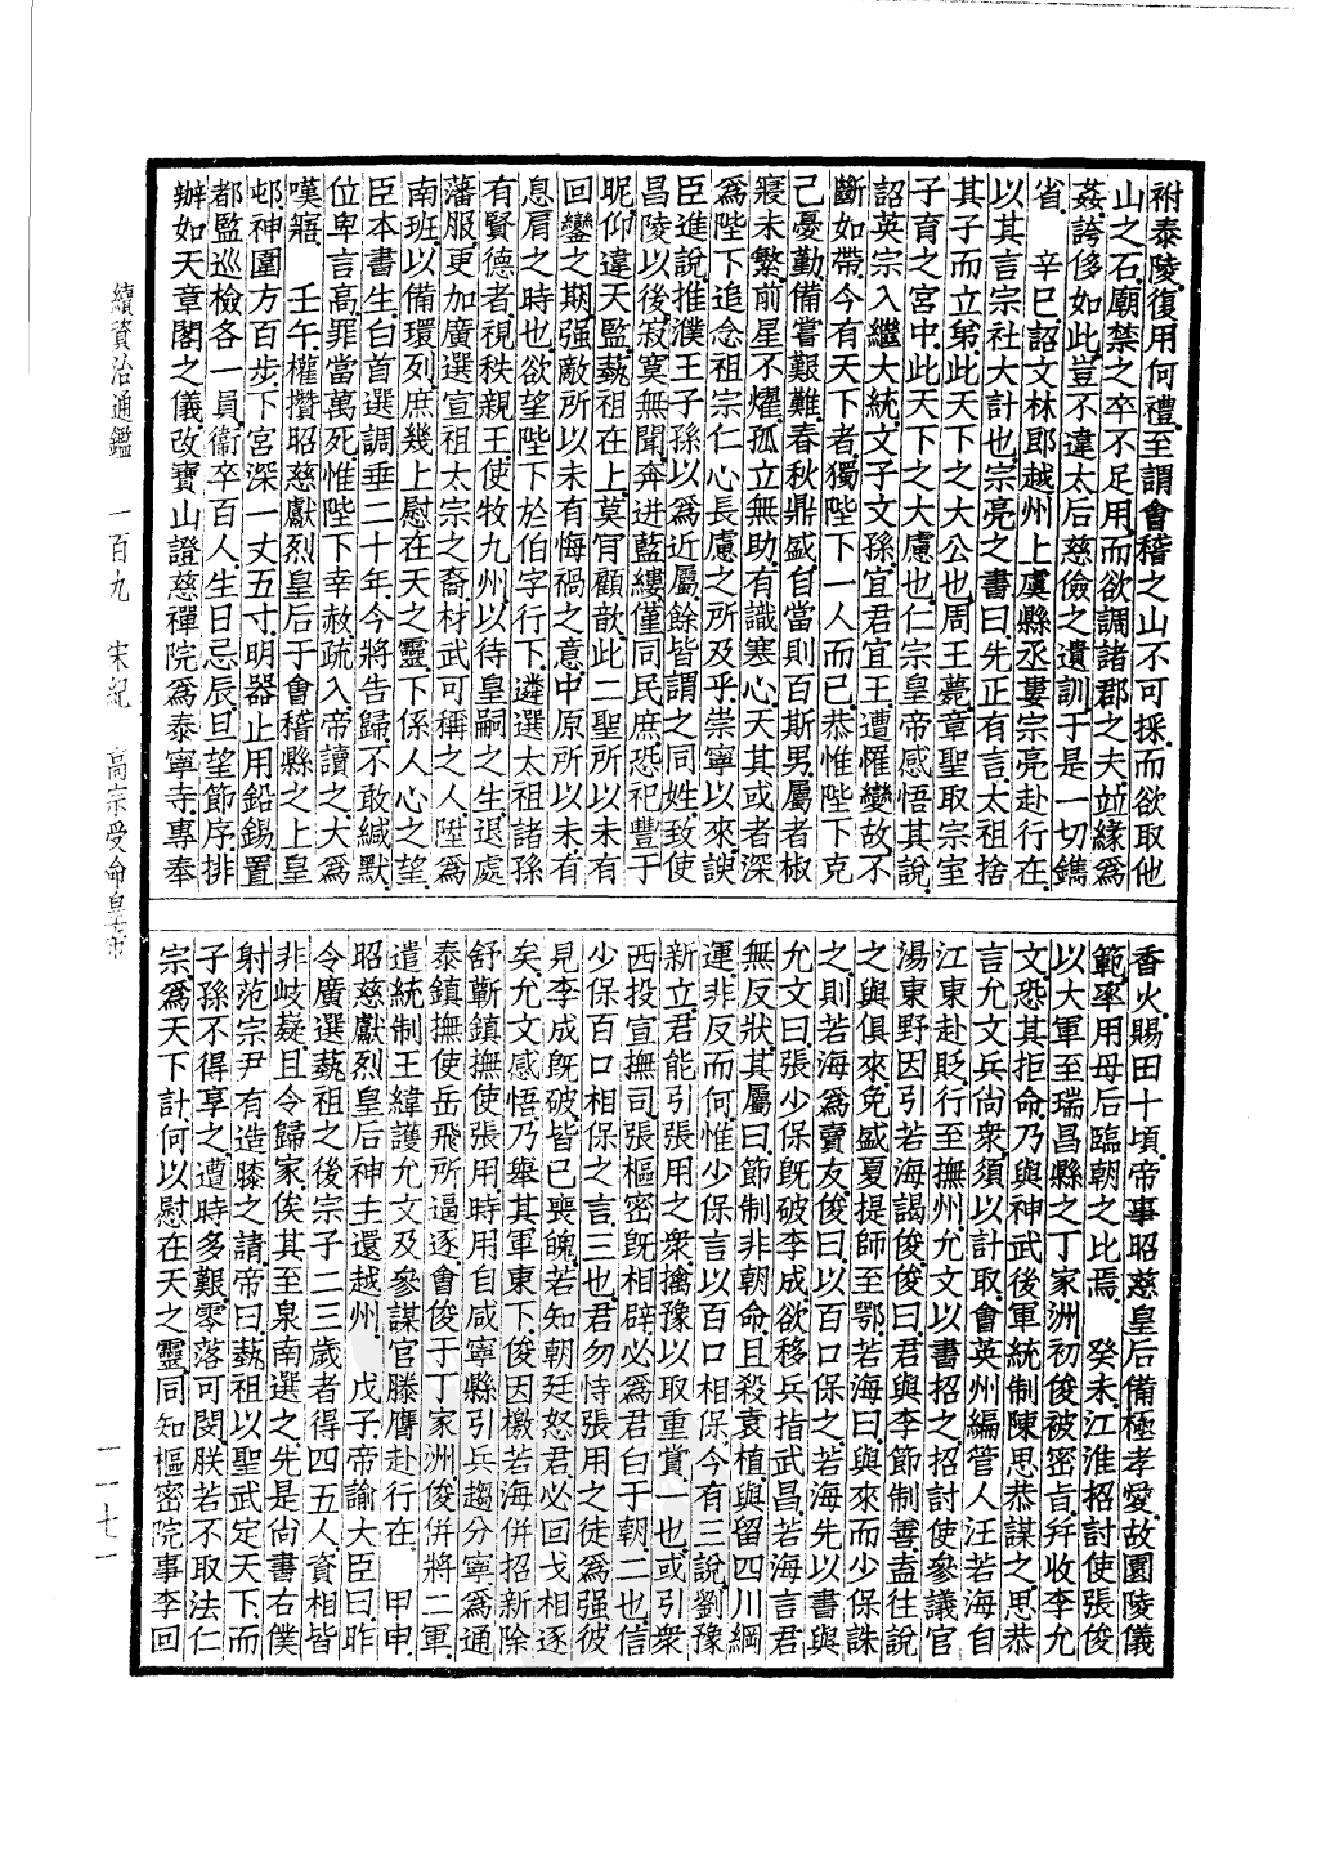 祔泰陵復用何禮至謂會稽之山不可採而欲取他
山之石廟禁之卒不足用而欲調諸郡之夫並緣爲
姦誇侈如此豈不違太后慈儉之遺訓于是一切鐫
省　辛巳詔文林郎越州上虞縣丞婁宗亮赴行在
以其言宗社大計也宗亮之書曰先正有言太祖捨
其子而立弟此天下之大公也周王薨章聖取宗室
子育之宮中此天下之大慮也仁宗皇帝感悟其說
詔英宗入繼大統文子文孫宜君宜王遭罹變故不
斷如帶今有天下者獨陛下一人而已恭惟陛下克
己憂勤備嘗艱難春秋鼎盛自當則百斯男屬者椒
寢未繁前星不燿孤立無助有識寒心天其或者深
爲陛下追念祖宗仁心長慮之所及乎崇寧以來諛
臣進說推濮王子孫以爲近屬餘皆謂之同姓致使
昌陵以後寂寞無聞奔迸藍縷僅同民庶恐祀豐于
昵仰違天監藝祖在上莫肯顧歆此二聖所以未有
回鑾之期强敵所以未有悔禍之意中原所以未有
息肩之時也欲望陛下於伯字行下遴選太祖諸孫
有賢德者視秩親王使牧九州以待皇嗣之生退處
藩服更加廣選宣祖太宗之裔材武可稱之人陞爲
南班以備環列庶幾上慰在天之靈下係人心之望
臣本書生白首選調垂二十年今將告歸不敢緘默
位卑言高罪當萬死惟陛下幸赦疏入帝讀之大爲
嘆寤　壬午權攢昭慈獻烈皇后于會稽縣之上皇
邨神圍方百步下宮深一丈五寸明器止用鉛錫置
都監巡檢各一員衞卒百人生日忌辰旦望節序排
辦如天章閣之儀改寶山證慈禪院爲泰寧寺專奉
香火賜田十頃帝事昭慈皇后備極孝愛故園陵儀
範率用母后臨朝之比焉　癸未江淮招討使張俊
以大軍至瑞昌縣之丁家洲初俊被密旨幷收李允
文恐其拒命乃與神武後軍統制陳思恭謀之思恭
言允文兵尙衆須以計取會英州編管人汪若海自
江東赴貶行至撫州允文以書招之招討使參議官
湯東野因引若海謁俊俊曰君與李節制善盍往說
之與俱來免盛夏提師至鄂若海曰與來而少保誅
之則若海爲賣友俊曰以百口保之若海先以書與
允文曰張少保旣破李成欲移兵指武昌若海言君
無反狀其屬曰節制非朝命且殺袁植與留四川綱
運非反而何惟少保言以百口相保今有三說劉豫
新立君能引張用之衆擒豫以取重賞一也或引衆
西投宣撫司張樞密旣相辟必爲君白于朝二也信
少保百口相保之言三也君勿恃張用之徒爲强彼
見李成旣破皆已喪魄若知朝廷怒君必回戈相逐
矣允文感悟乃舉其軍東下俊因檄若海併招新除
舒蘄鎮撫使張用時用自咸寧縣引兵趨分寧爲通
泰鎮撫使岳飛所逼逐會俊于丁家洲俊併將二軍
遣統制王緯護允文及參謀官滕膺赴行在　甲申
昭慈獻烈皇后神主還越州　戊子帝諭大臣曰昨
令廣選藝祖之後宗子二三歲者得四五人資相皆
非岐嶷且令歸家俟其至泉南選之先是尙書右僕
射范宗尹有造膝之請帝曰藝祖以聖武定天下而
子孫不得享之遭時多艱零落可閔朕若不取法仁
宗爲天下計何以慰在天之靈同知樞密院事李回
續資治通鑑　一百九　宋紀　高宗受命皇帝　二一七一